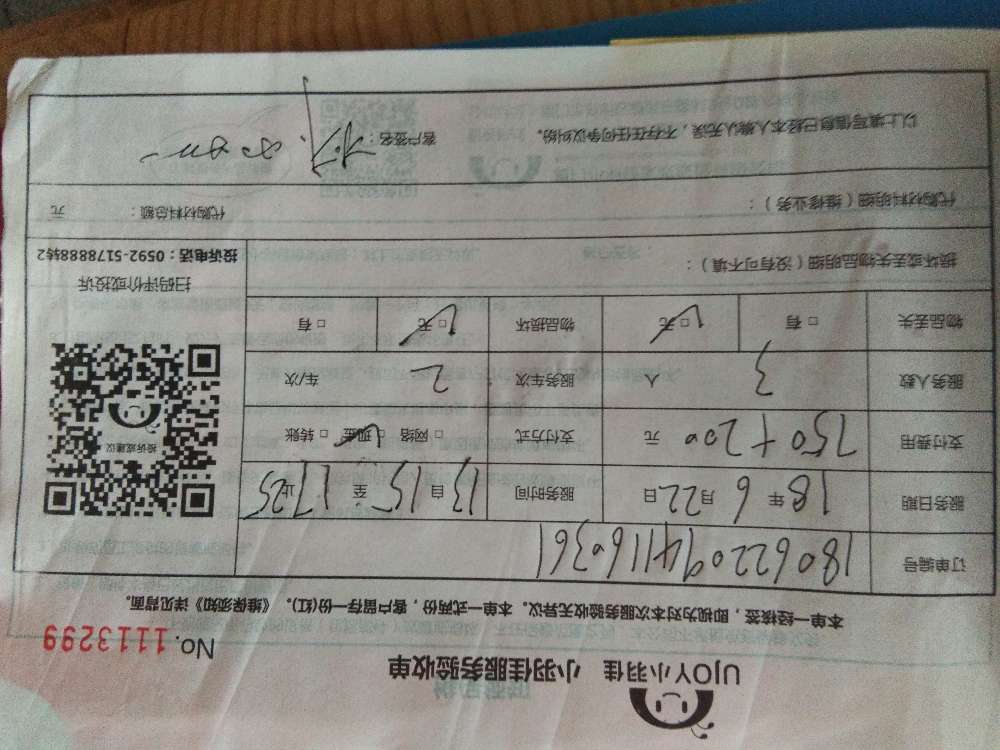 UJOY小羽佳 小羽佳服务验收单
No. 1113299
本单一经核签，即视为对本次服务验收无异议。本单一式两份，客户留存一份(红)。《维保须知》详见背面。
订单编号 1806220941160361
服务日期 18年6月22日 服务时间 自13:15至17:25止
支付费用 750+200元 支付方式 □网络 □现金 □转账
服务人数 3人 服务车次 2车/次
物品丢失 □有 □无 物品损坏 □无 □有
投诉或建议
扫码评价或投诉
损坏或丢失物品明细（没有可不填）：
投诉电话：0592-5178888转2
代购材料明细（维修业务）： 代购材料总额： 元
以上填写信息已经本人确认无误，不存在任何争议纠纷。 客户签名：